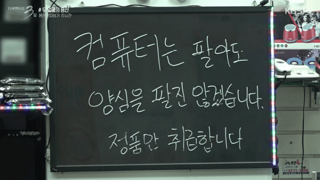 컴퓨터는 팔아도
양심을 팔진 않겠습니다.
정품만 취급합니다